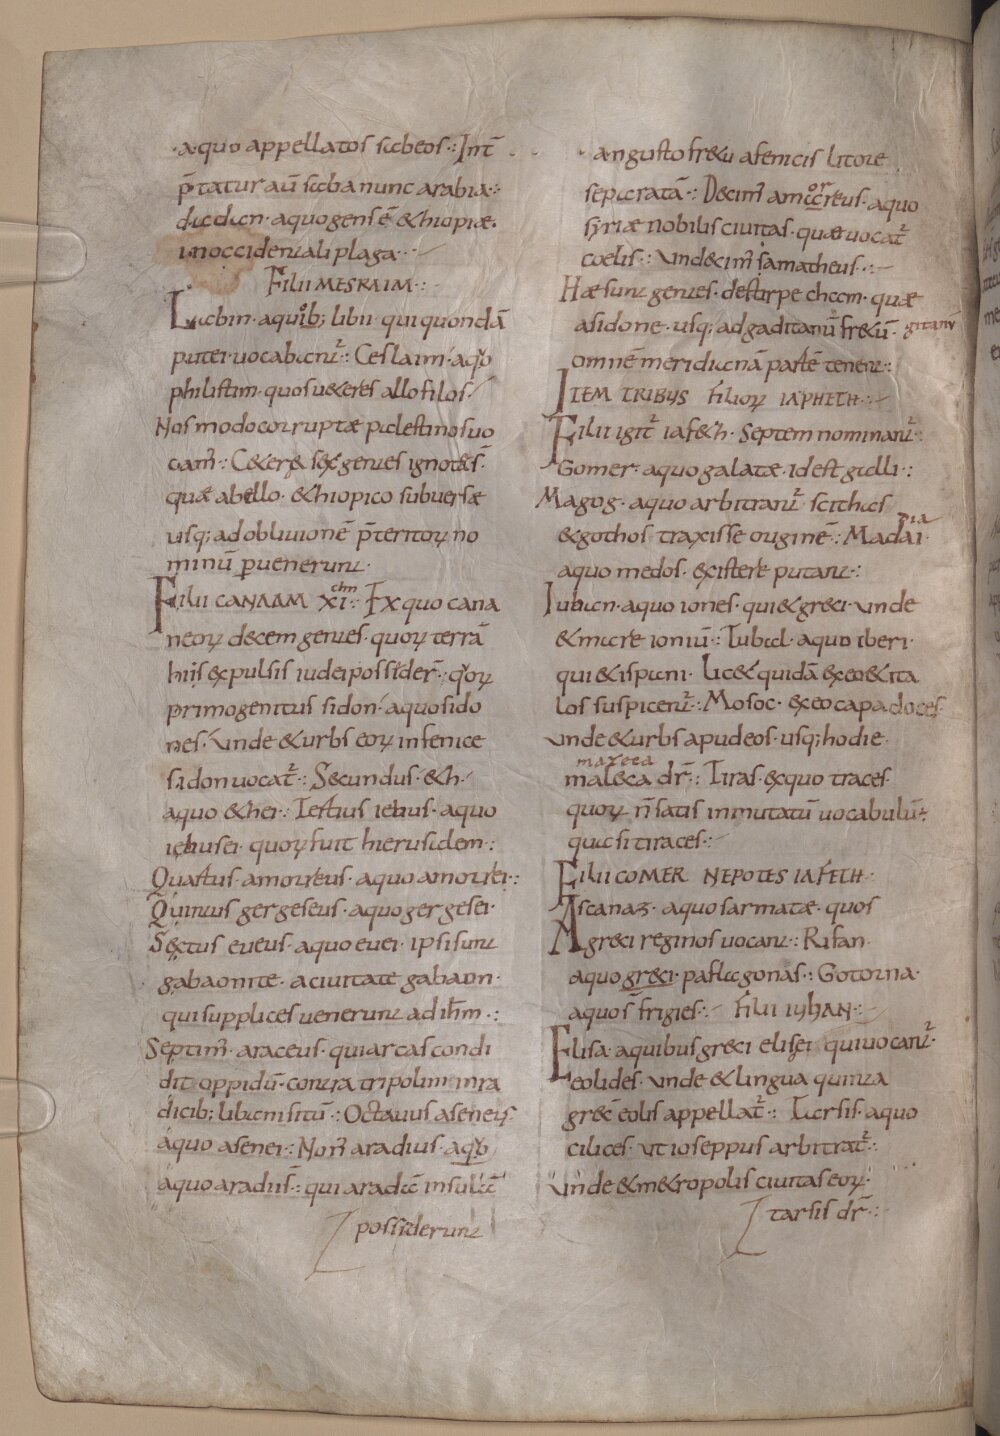 a quo appellatos sabeos·: Int̄
p̄tatur aū saba nunc arabia·:
dadan· a quo gens ē & hiopiæ·
in occidentali plaga··
Filii MESRAIM·:
Labin· a quib; libii qui quondā
putei uocabant᷑·: Ceslaim· a qͦ
philistim· quos u&eres allofilos
Nos modo corrupte palestinos uo
cam᷑·: C&erȩ sex gentes ignotȩ s·
quæ a bello· & hiopico subuersæ
usq; ad obliuionē p̄teritoꝝ no
minū ꝑuenerunt·
Filii CANAAM XI·: Ex quo cana
chm
neoꝝ decem gentes· quoꝝ terrā
hiis expulsis iudei possider̄·: qͦꝝ
primogenitus sidon· a quo sido
nes· Vnde & urbs eoꝝ in fenice
sidon uocat᷑·: Secundus· &h·
a quo & hei·: Tertius iebus· a quo
iebusei· quoꝝ fuit hierusalem·:
Quartus· amorreus· a quo amorrei·:
Quintus gergeseus· a quo gergesei·
Sextus eueus· a quo euei· ipsi sunt
gabaonite· a ciuitate gabaon·
qui supplices uenerunt ad ih̄m·:
Septim᷑· araceus· qui arcas condi
dit oppidū· contra tripolim in ra
dicib; libani sitū·: Octauus aseneus·
a quo asenei·: Non᷑ aradius· a qͦ
a quo aradii s̄·: qui aradā insulā
possiderunt
angusto fr&u a fenicis litore
separatā·: Decim᷑ amareus· a quo
or
syriæ nobilis ciuitas· quæ uocat᷑
coelis·: Vndecim᷑ samatheus·:
Hæ sunt gentes· de stirpe cham· quæ
a sidone· usq; ad gaditanū fr&ū·
gitanū
omnē meridianā partē tenent·:
ITEM TRIBUS filioꝝ IAPHETH·:
Filii igit᷑ iaf&h· Septem nominant᷑·:
Gomer· a quo galatæ· id est galli·:
Magog· a quo arbitrant᷑ scithas
& gothos traxisse originē·: Madai·
pia
a quo medos· existere putant·:
Iuban· a quo iones· qui & greci· Vnde
& mare ioniū·: Tubal· a quo iberi·
qui & ispani· lic& quidā ex eo & ita
los suspicent᷑·: Mosoc· ex eo capadoces
Vnde & urbs apud eos· usq; hodie
mazeca
maleca dr̄·: Tiras· ex quo traces
quoꝝ n̄ satis inmutatū uocabulū·:
quasi tiraces·:
Filii COMER NEPOTES IAFETH·
Ascanaz· a quo sarmatæ· quos
greci reginos uocant·: Rifan·
a quo greci· paflagonas·: Gotorna·
a quo s̄ frigies·: filii iuhAN·:
Elisa· a quibus greci elisei qui uocant᷑·
eolides· Vnde & lingua quinta
grec̄ eolis appellat᷑·: Tarsis· a quo
cilices· ut ioseppus arbitrat᷑·:
Vnde & m&ropolis ciuitas eoꝝ·
tarsis dr̄·: